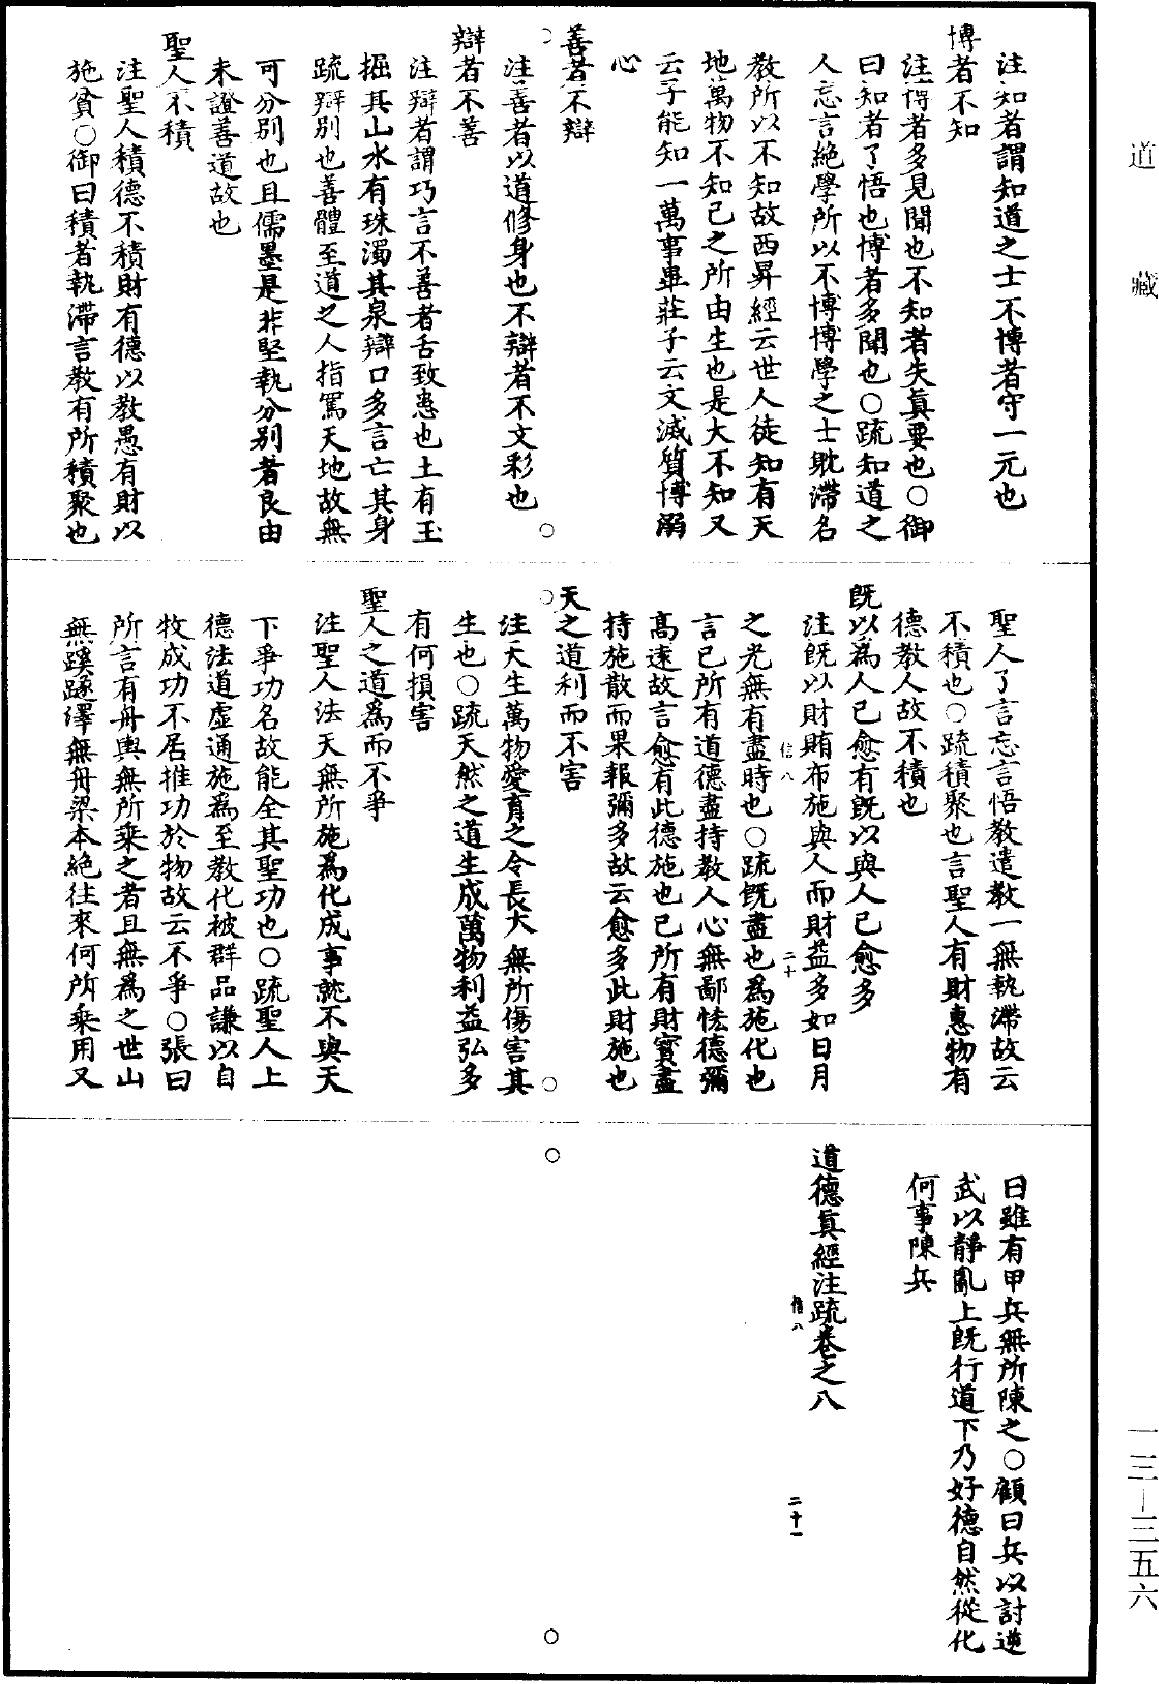 道藏
注知者謂知道之士不博者守一元也
博者不知
注博者多見聞也不知者失眞要也○御
曰知者了悟也博者多聞也○疏知道之
人忘言絶學所以不博博學之士躭滯名
教所以不知故西昇經云世人徒知有天
地萬物不知己之所由生也是大不知又
云子能知一萬事畢莊子云文滅質博溺
心
善者不辯
注善者以道修身也不辯者不文彩也
辯者不善
注辯者謂巧言不善者舌致患也土有玉
掘其山水有珠濁其泉辯口多言亡其身
疏辯別也善體至道之人指罵天地故無
可分別也且儒墨是非堅執分別者良由
未證善道故也
聖人不積
注聖人積德不積財有德以教愚有財以
施貧○御曰積者執滯言教有所積聚也
聖人了言忘言悟教遣教一無執滯故云
不積也○疏積聚也言聖人有財惠物有
德教人故不積也
旣以爲人己愈有旣以與人己愈多
注旣以財賄布施與人而財益多如日月
信八
二十
之光無有盡時也○疏旣盡也爲施化也
言已所有道德盡持教人心無鄙恡德彌
高遠故言愈有此德施也已所有財寶盡
持施散而果報彌多故云愈多此財施也
天之道利而不害
注天生萬物愛育之令長大無所傷害其
生也○疏天然之道生成萬物利益弘多
有何損害
聖人之道爲而不爭
注聖人法天無所施爲化成事就不與天
下爭功名故能全其聖功也○疏聖人上
德法道虛通施爲至教化被群品謙以自
牧成功不居推功於物故云不爭○張曰
所言有舟輿無所乘之者且無爲之世山
無蹊蹊澤無舟梁本絶往來何所乘用又
曰雖有甲兵無所陳之○顧曰兵以討逆
武以靜亂上旣行道下乃好德自然從化
何事陳兵
道德眞經注疏卷之八
信八
二十一
一三—三五六